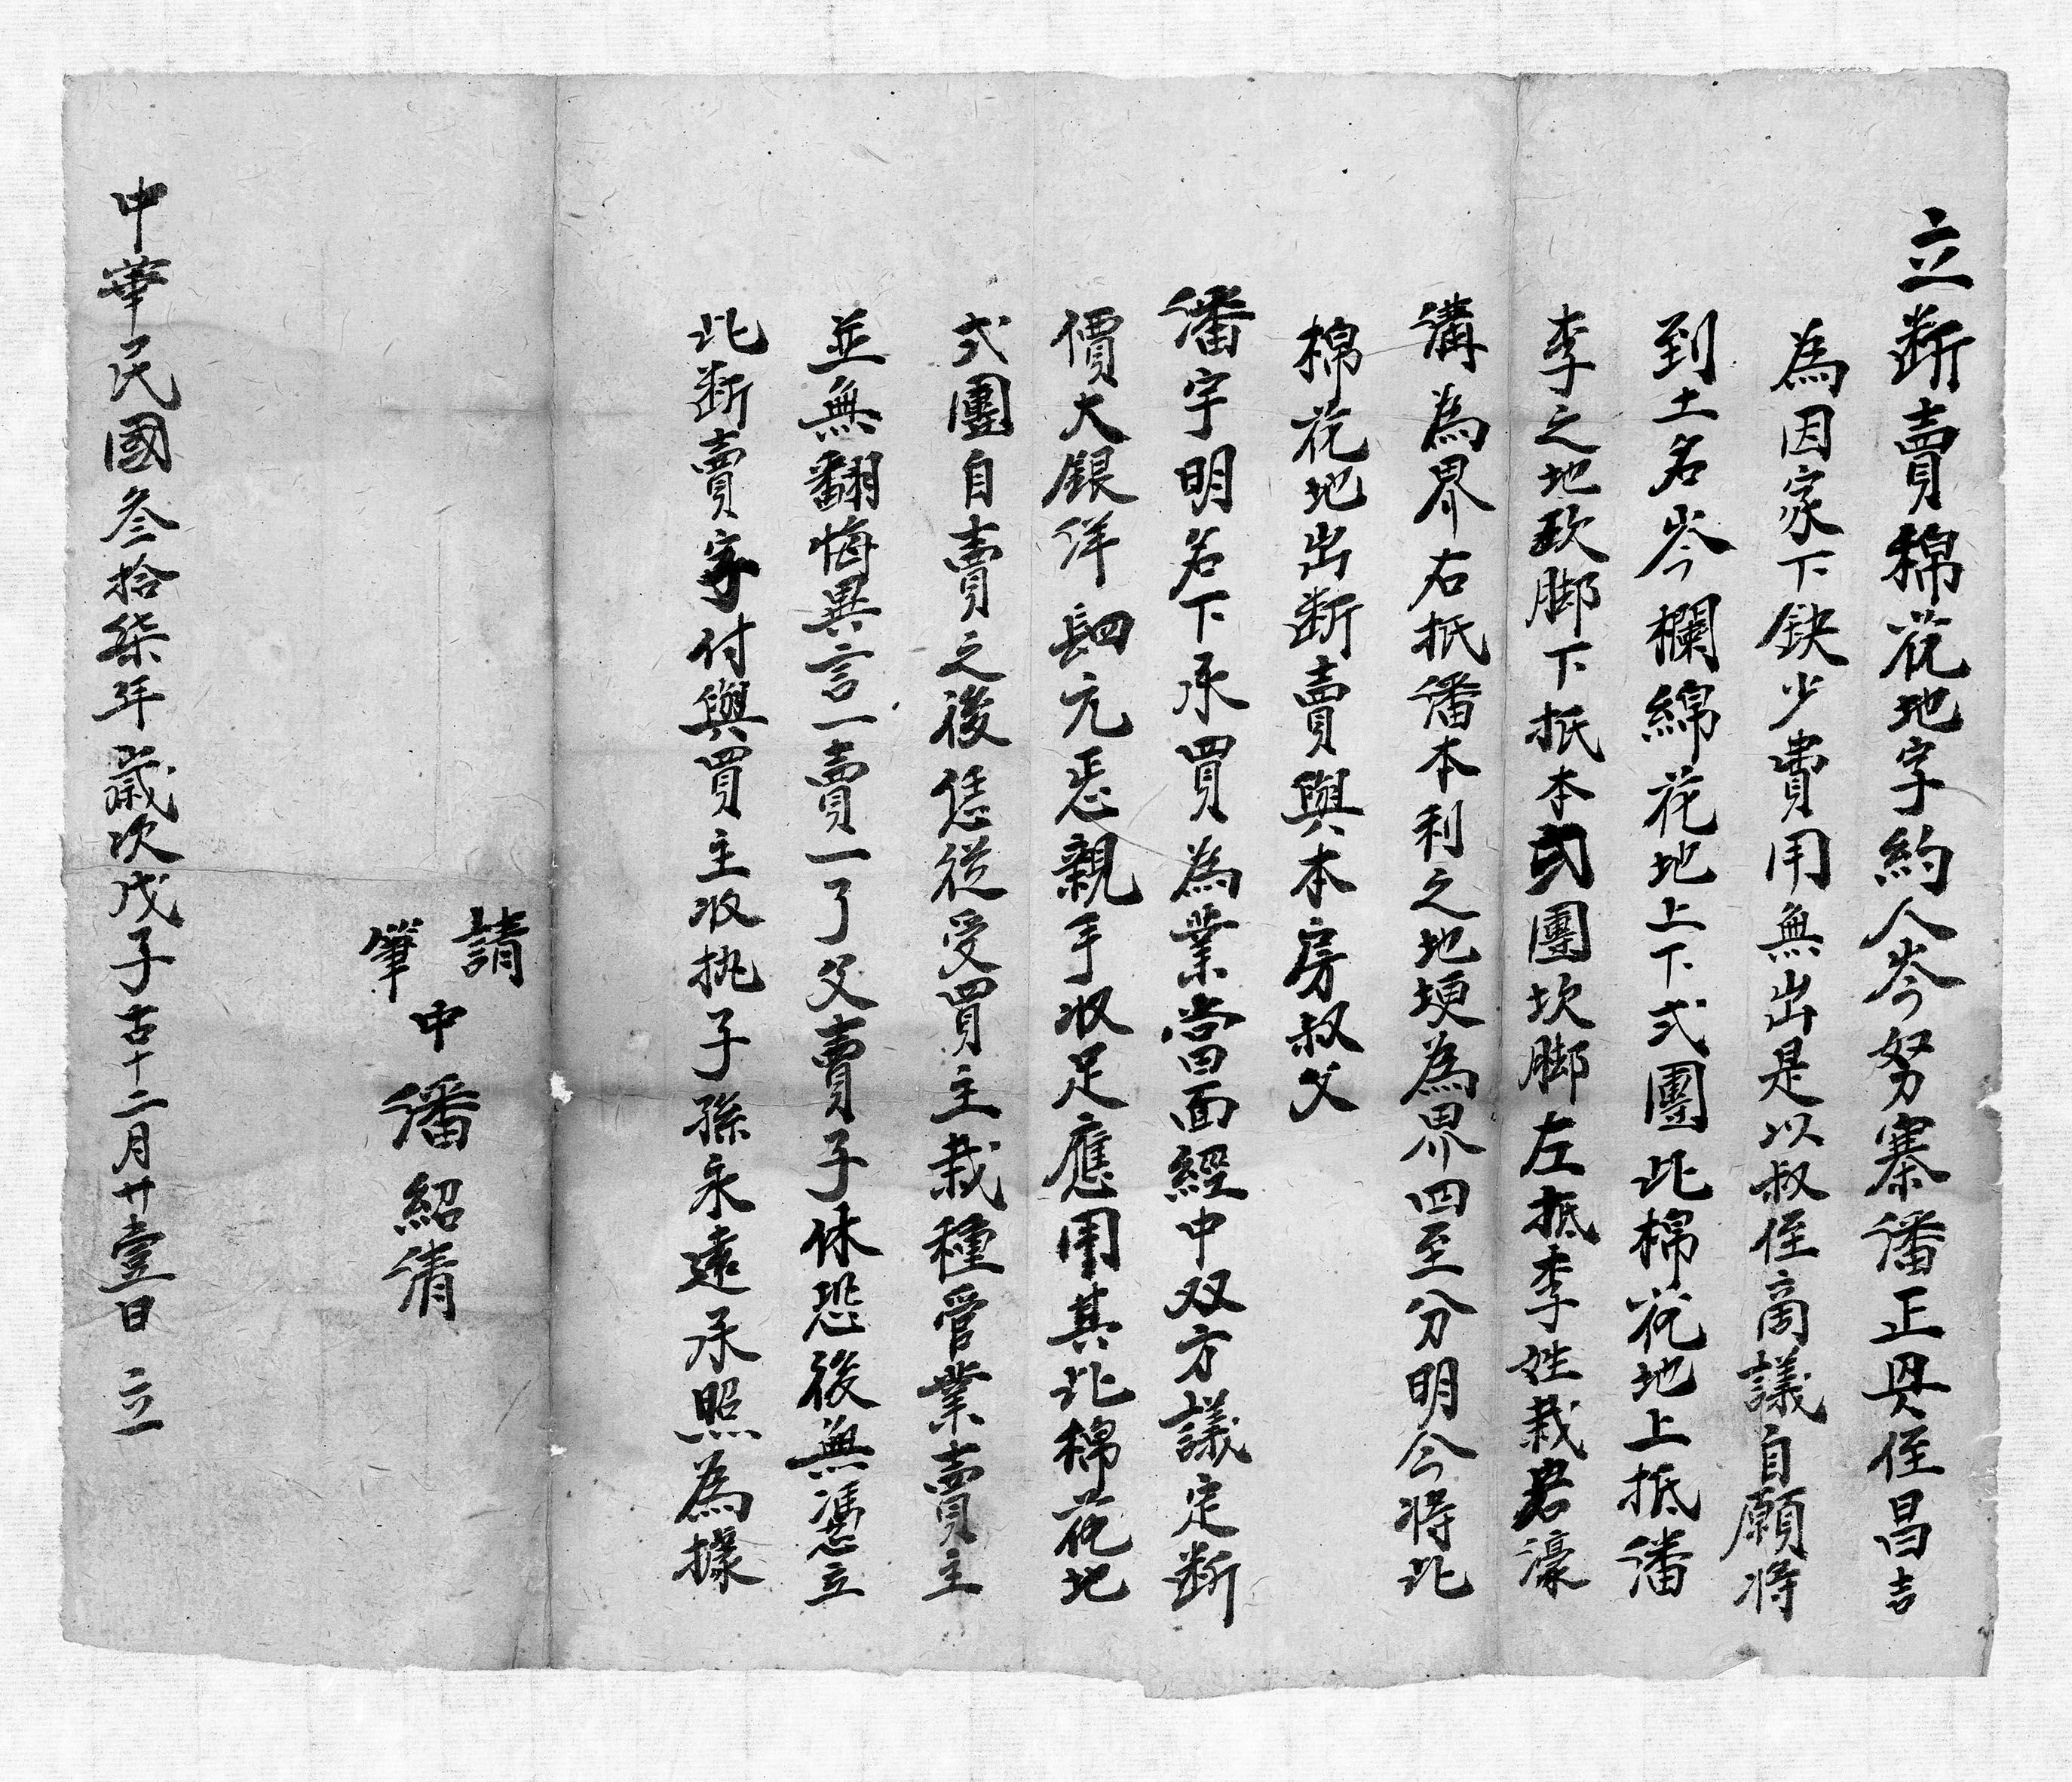 立断賣棉花地字約人岑努寨潘正興侄昌吉
為因家下缺少費用無出是以叔侄商議自願將
到土名岑欄綿花地上下弍團此棉花地上抵潘
李之地砍脚下抵本弍團坎脚左抵李姓栽岩濠
溝為界右抵潘本利之地埂為界四至分明今將此
棉花地出断賣與本房叔父
潘宇明名下承買為業當面經中双方議定断
價大銀洋肆元悉親手收足應用其此棉花地
弍團自賣之後恁從受買主栽種管業賣主
並無翻悔異言一賣一了父賣子休恐後無憑立
此断賣字付與買主收执子孫永遠承照為據
請
筆
中潘紹清
中華民國叁拾柒年歲次戊子古十二月廿壹日 立